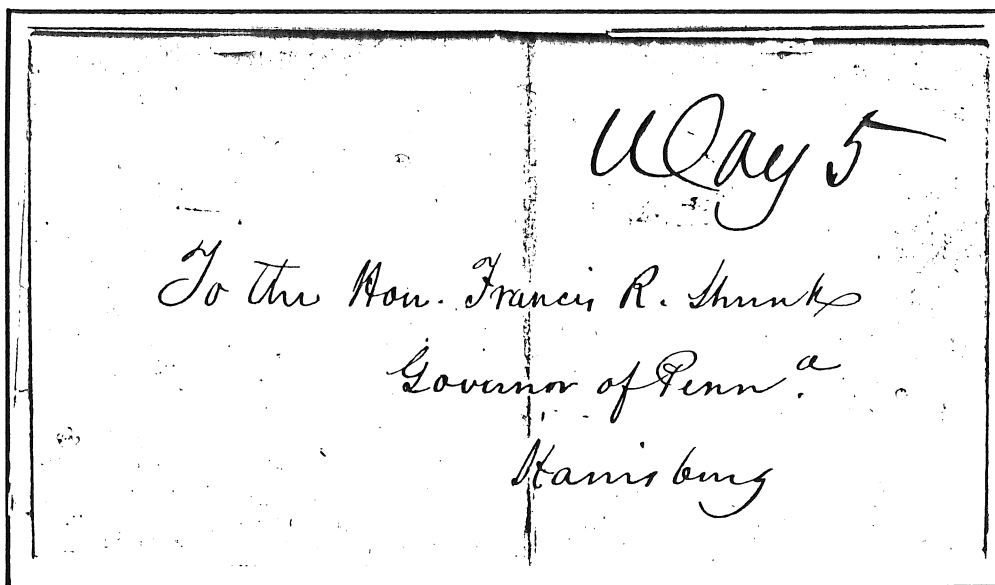 Way 5
To the Hon. Francis R. Shunk
Governor of Penn.ᵃ
Harrisburg